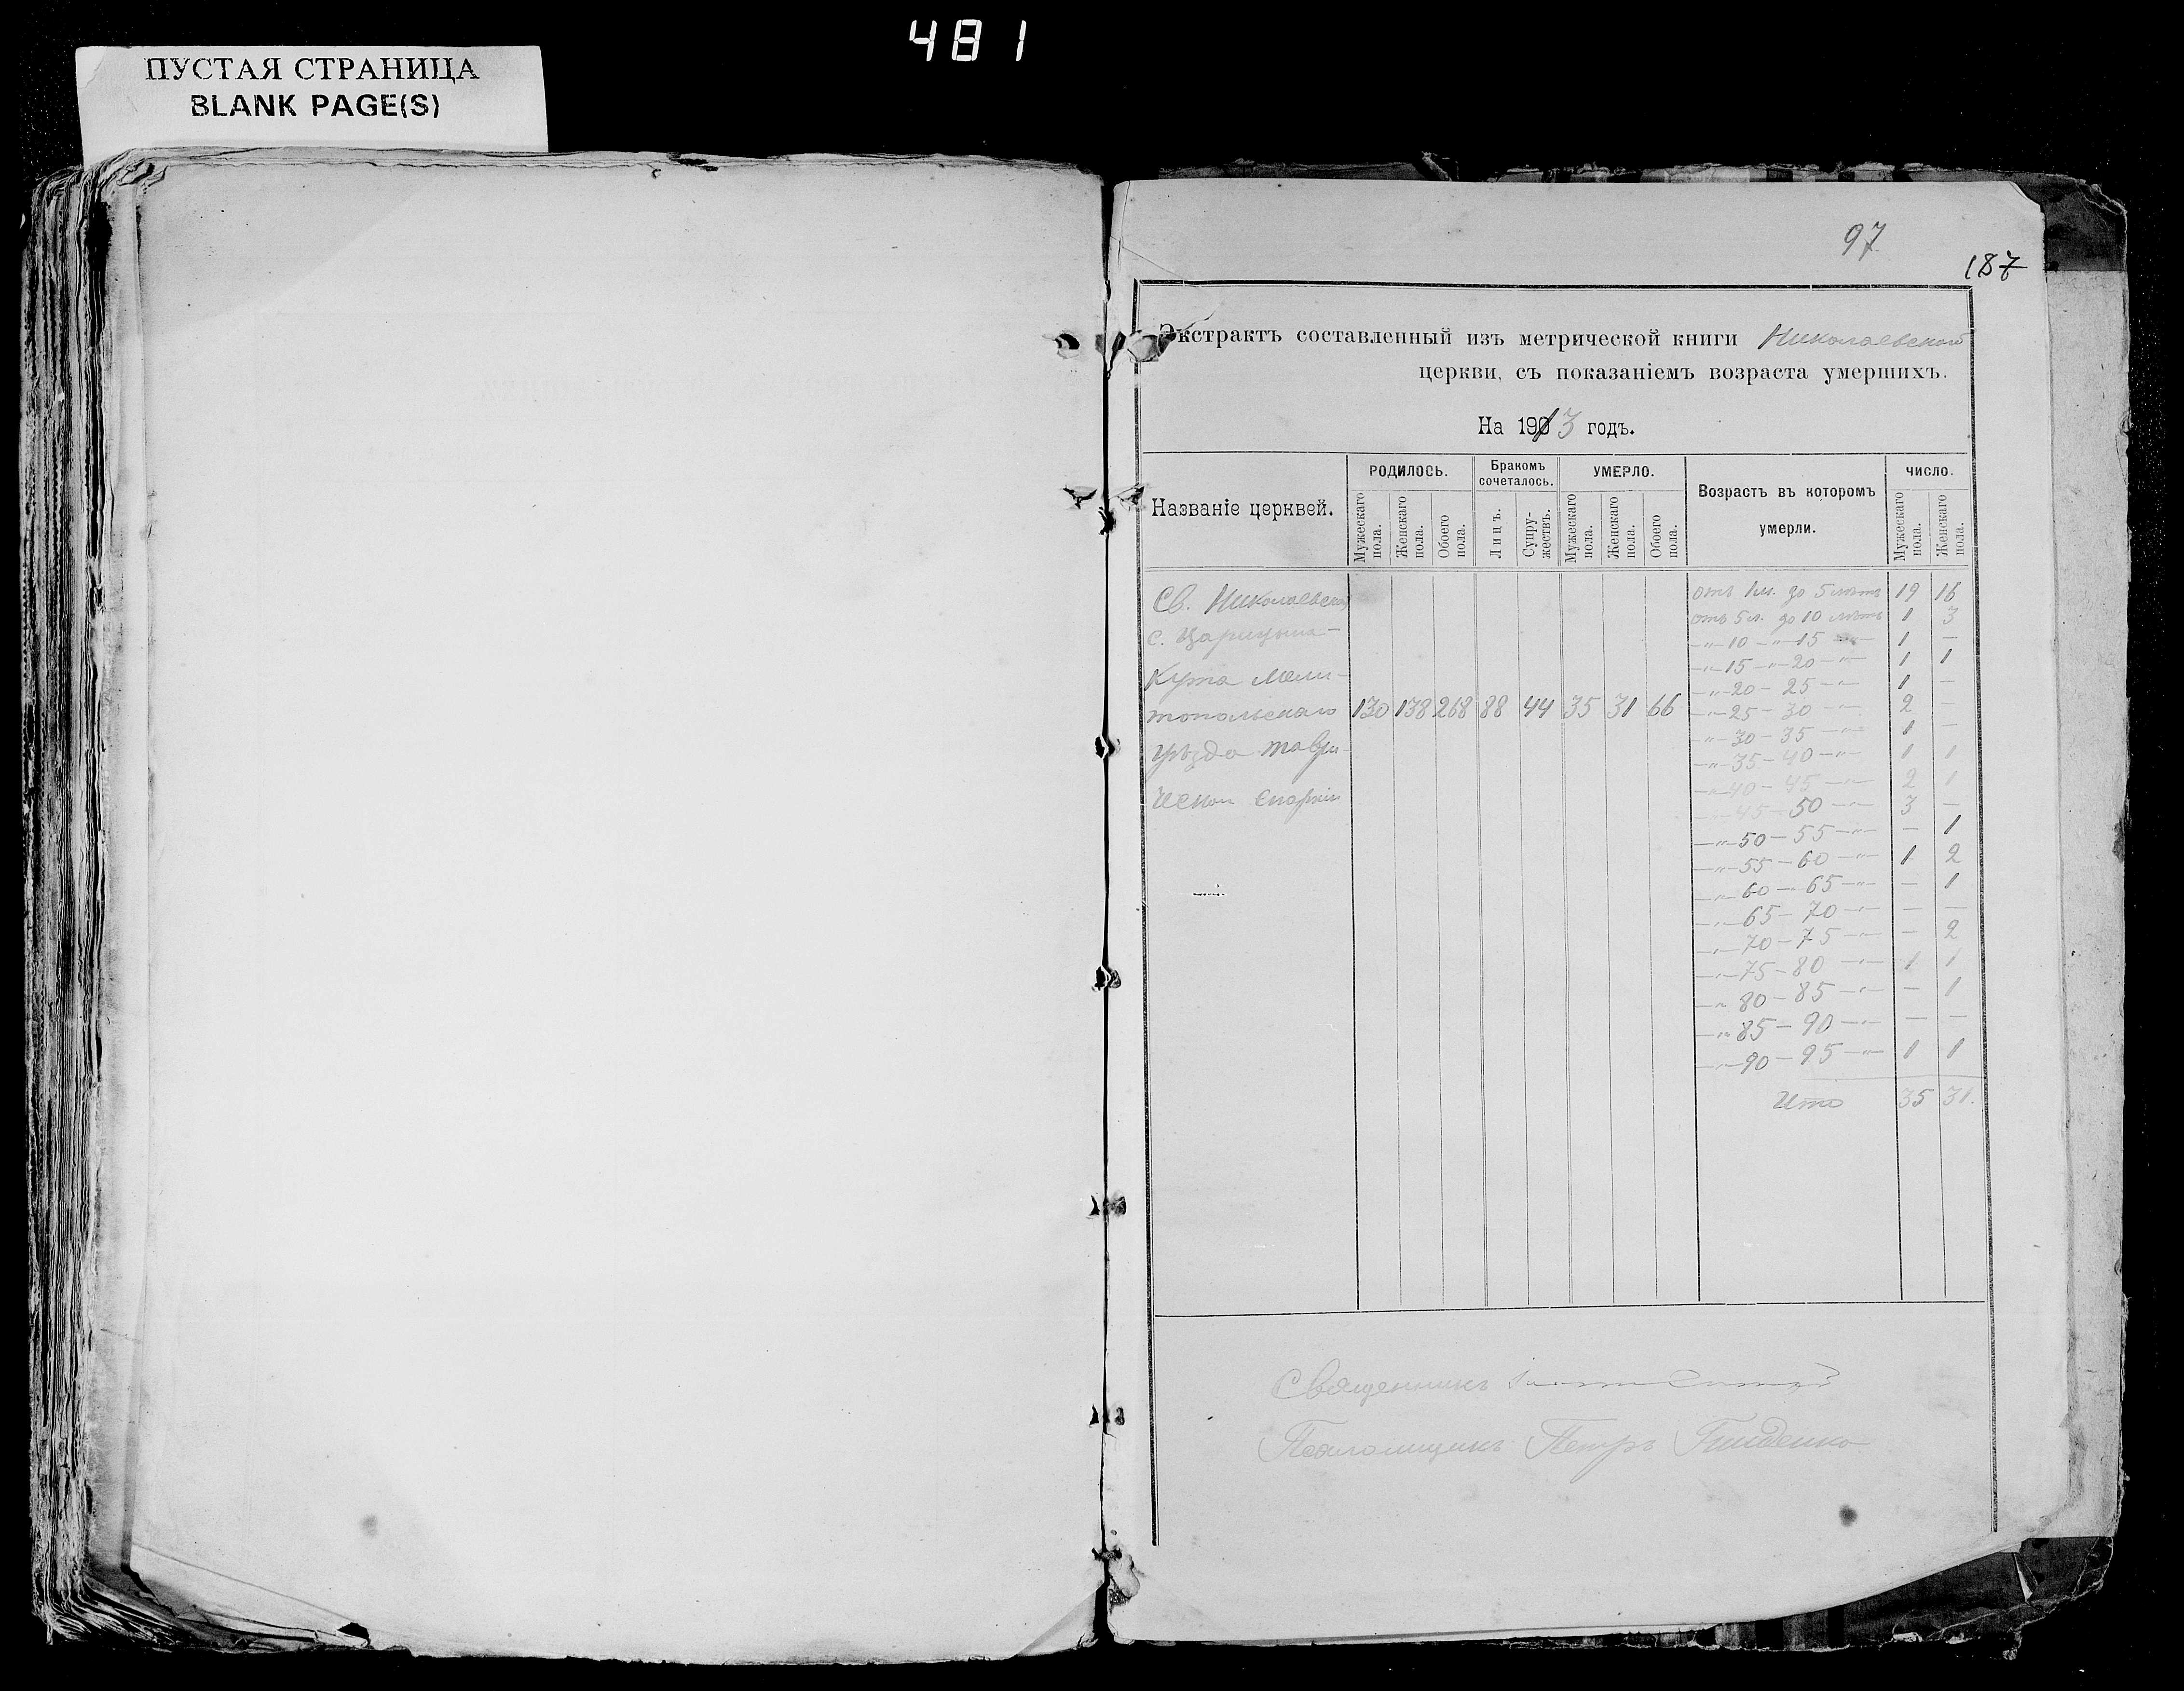 481
ПУСТАЯ СТРАНИЦА
BLANK PAGE(S)
97
187
Экстрактъ составленный изъ метрической книги Николаевской
церкви, съ показаніемъ возраста умершихъ.
На 1913 годъ.
Названіе церквей.
РОДИЛОСЬ. Мужескаго пола. Женскаго пола. Обоего пола.
Бракомъ сочеталось. Лицъ. Супружествъ.
УМЕРЛО. Мужескаго пола. Женскаго пола. Обоего пола.
Возрастъ въ которомъ умерли.
ЧИСЛО. Мужескаго пола. Женскаго пола.
Св. Николаевской
с. Царицына-
Кута Мели-
топольскаго 130 138 268 88 44 35 31 66
уѣзда Таври-
ческой Епархіи
отъ 1 м. до 5 лѣтъ 19 16
отъ 5 л. до 10 лѣтъ 1 3
—"—10 —"—15 —"— 1 —
—"—15 —"—20 —"— 1 1
—"—20 — 25 —"— 1 —
—"—25 — 30 —"— 2 —
—"—30 — 35 —"— 1 —
—"—35 — 40 —"— 1 1
—"—40 — 45 —"— 2 1
—"—45 — 50 —"— 3 —
—"—50 — 55 —"— — 1
—"—55 — 60 —"— 1 2
—"—60 — 65 —"— — 1
—"—65 — 70 —"— — —
—"—70 — 75 —"— — 2
—"—75 — 80 —"— 1 1
—"—80 — 85 —"— — 1
—"—85 — 90 —"— — —
—"—90 — 95 —"— 1 1
Итого 35 31.
Священникъ
Псаломщикъ Петръ